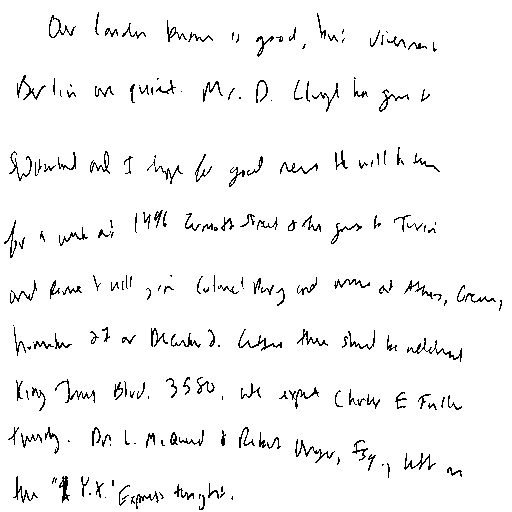 Our London business is good, but Vienna and
Berlin are quiet. Mr. D. Lloyd has gone to
Switzerland and I hope for good news. He will be there
for a week at 1496 Zermott Street & then goes to Turin
and Rome & will join Colonel Parry and arrive at Athens, Greece,
November 27 or December 2. Letters there should be addressed
King James Blvd. 3580. We expect Charles E. Fuller
Tuesday. Dr. L. McQuaid & Robert Unger, Esq., left on
the "Y.X." Express tonight.